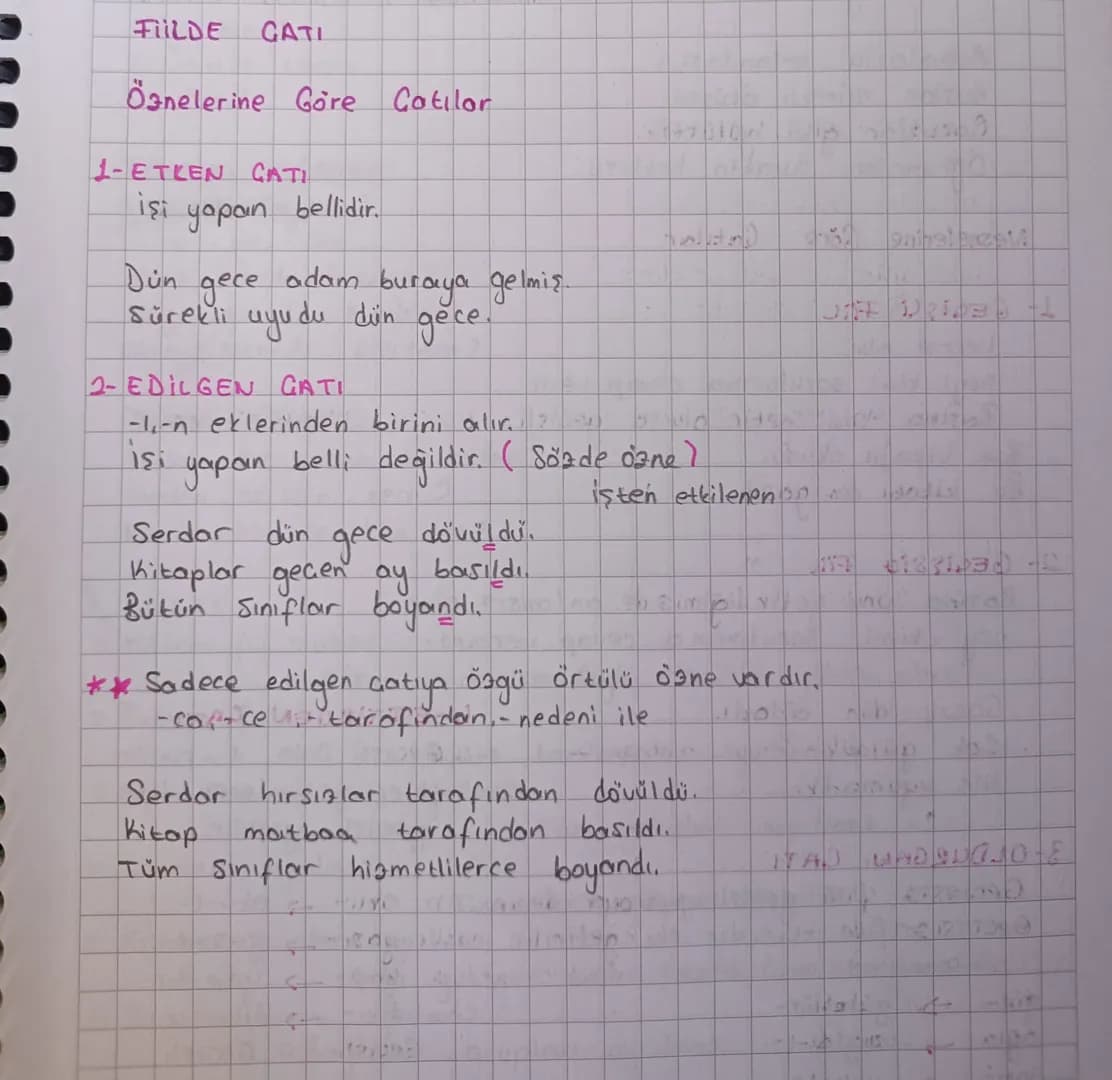 FİİLDE ÇATI
Öznelerine Göre Çatılar
1-ETKEN ÇATI
işi yapan bellidir.
Dün gece adam buraya gelmiş.
Sürekli uyudu dün gece.
2-EDİLGEN ÇATI
-l,-n eklerinden birini alır.
İşi yapan belli değildir. (Sözde özne)
işten etkilenen
Serdar dün gece dövüldü.
Kitaplar geçen ay basıldı.
Bütün sınıflar boyandı.
** Sadece edilgen çatıya özgü örtülü özne vardır.
-ca,-ce,- tarafından,- nedeni ile
Serdar hırsızlar tarafından dövüldü.
Kitap matbaa tarafından basıldı.
Tüm sınıflar hizmetlilerce boyandı.